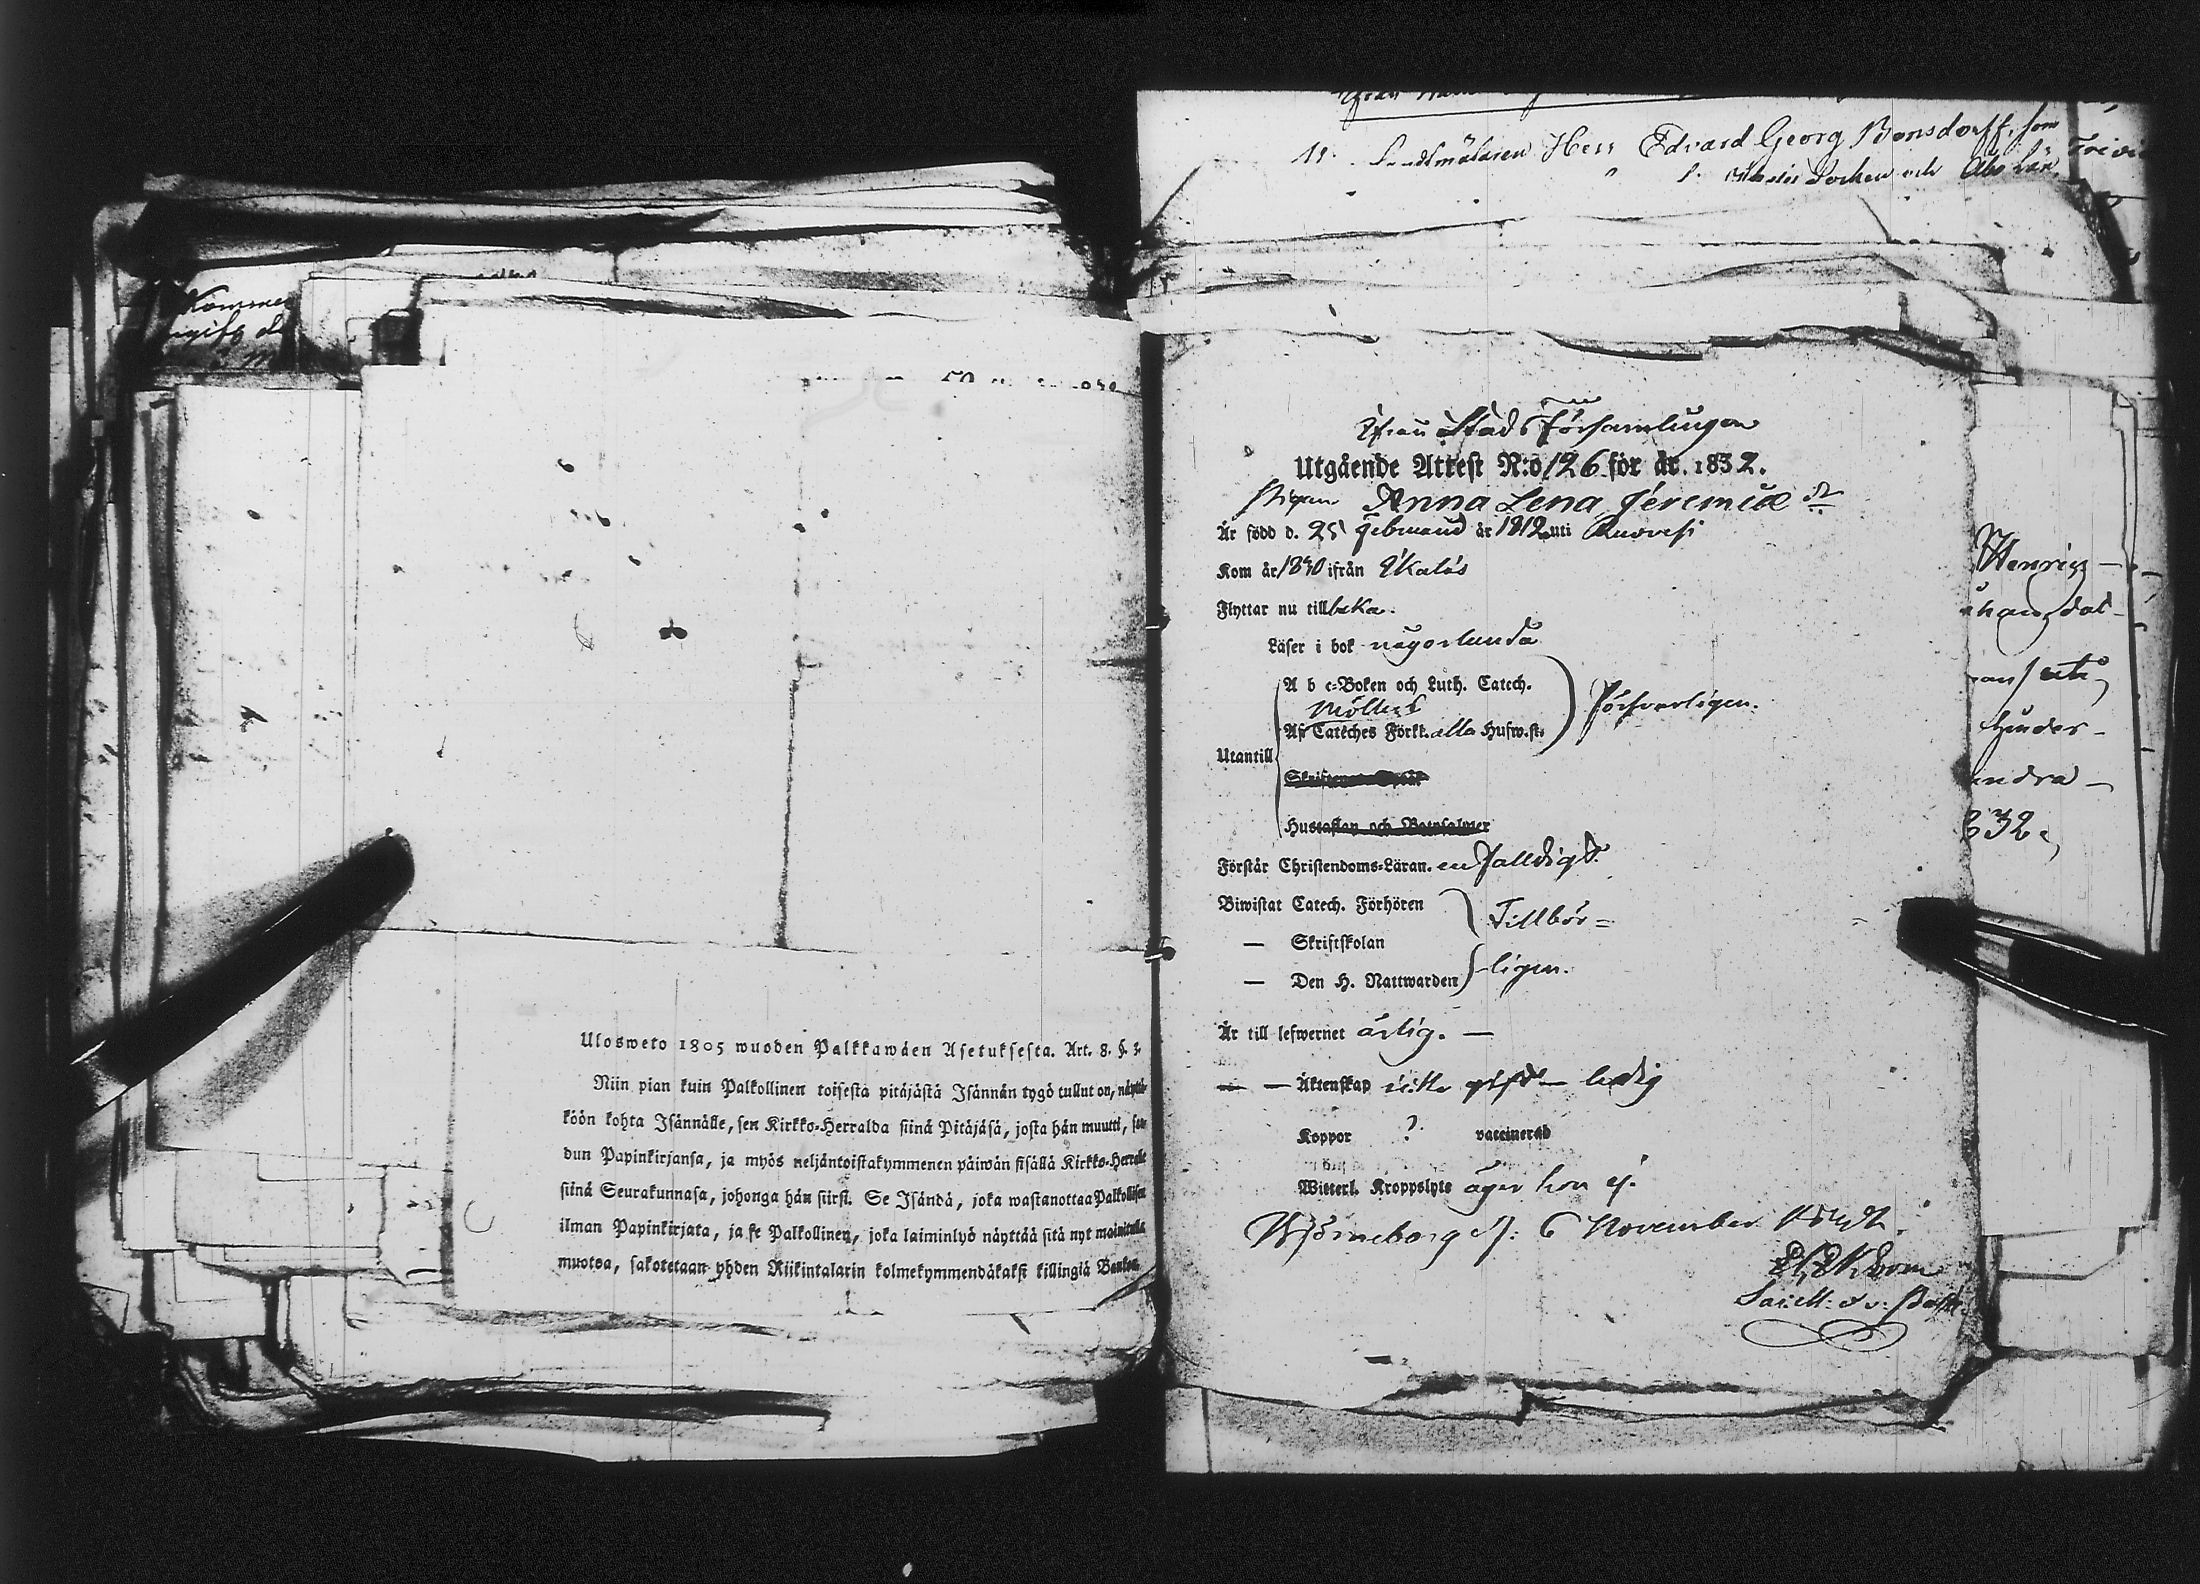 Kommer
Ulosweto 1805 wuoden Palkkawäen Asetuksesta. Art. 8. §. 3.
Niin pian kuin Palkollinen toisesta pitäjästä Isännän tygö tullut on, näyttä-
köön kohta Isännälle, sen Kirkko-Herralda siinä Pitäjäsä, josta hän muutti, saa-
dun Papinkirjansa, ja myös neljäntoistakymmenen päiwän sisällä Kirkko-Herralle
siinä Seurakunnasa, johonga hän siirsi. Se Isändä, joka wastanottaa Palkollisen
ilman Papinkirjata, ja se Palkollinen, joka laiminlyö näyttää sitä nyt mainitulla
muotoa, sakotetaan yhden Riikintalarin kolmekymmendäkaksi killingiä Bankos.
Herr Edvard Georg Bonsdorff, som
Socken och Åbo Län
Ifrån Stads Församlingen
Utgående Attest N:o 126 för år. 1832.
Pigan Anna Lena Jeremiæ dr
Är född d. 25 Februarii år 1812 uti Ruovesi
Kom år 1830 ifrån Ikalis
Flyttar nu tillbaka.
Läser i bok någorlunda
A b c-Boken och Luth. Catech.
Möllers
Af Cateches Förkl. alla Husw.st.
Försvarligen.
Utantill
Hustaflan och Botpsalmer
Förstår Christendoms-Läran. enfalldigt.
Biwistat Catech. Förhören
— Skriftskolan
— Den H. Nattwarden
Tillbör=
ligen.
Är till lefwernet ärlig. —
— — Äktenskap icke gift — ledig
Koppor ? vaccinerad
Witterl. Kroppslyte äger hon ej.
Björneborg d. 6 November 1832.
Henrics
hunder-
andra —
832